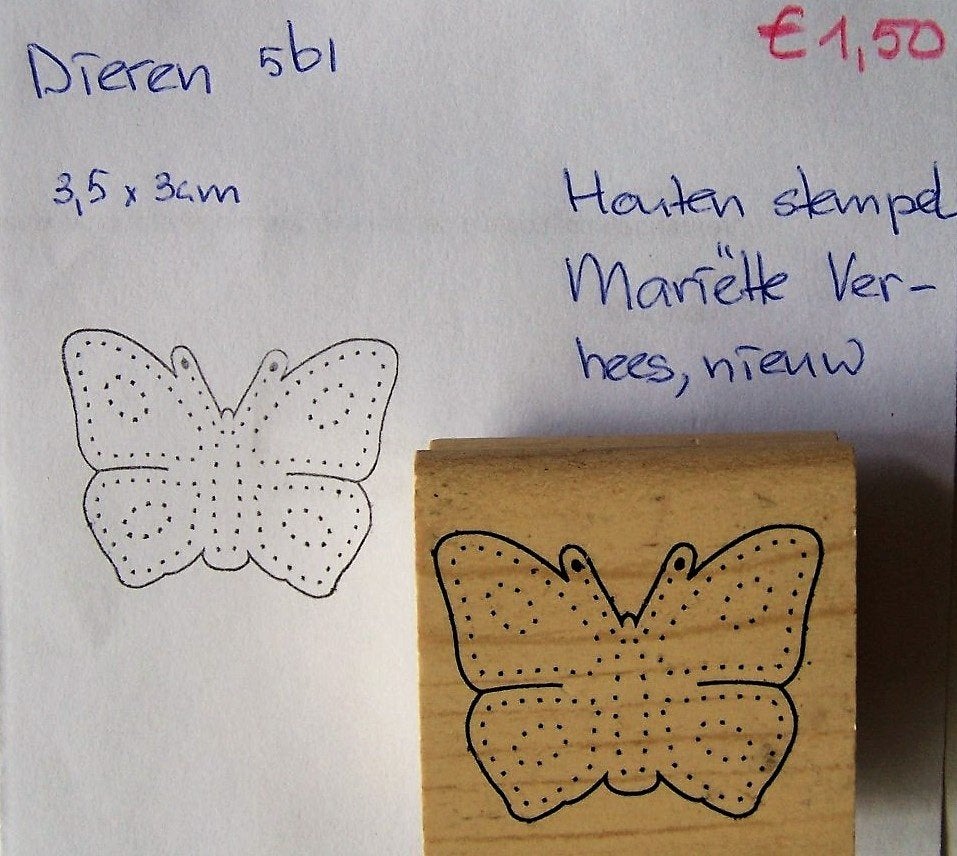 Dieren 5b1
€1,50
3,5 x 3cm
Houten stempel
Mariëtte Ver-
hees, nieuw